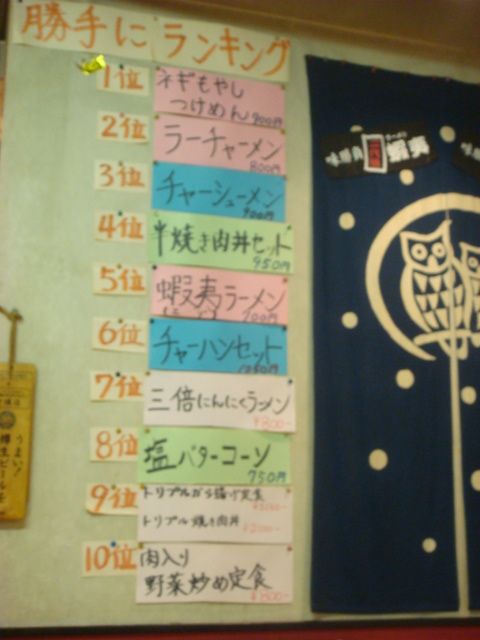 勝手にランキング
1位
ネギもやし
つけめん 900円
2位
ラーチャーメン
800円
3位
チャーシューメン
900円
4位
半焼き肉丼セット
950円
5位
蝦夷ラーメン
700円
6位
チャーハンセット
1050円
7位
三倍にんにくラーメン
¥800-
8位
塩バターコーン
750円
9位
トリプルから揚げ定食
トリプル焼き肉丼
¥2000-
10位
肉入り
野菜炒め定食
味勝負
ラーメン
蝦夷
うまい!
樽生ビール